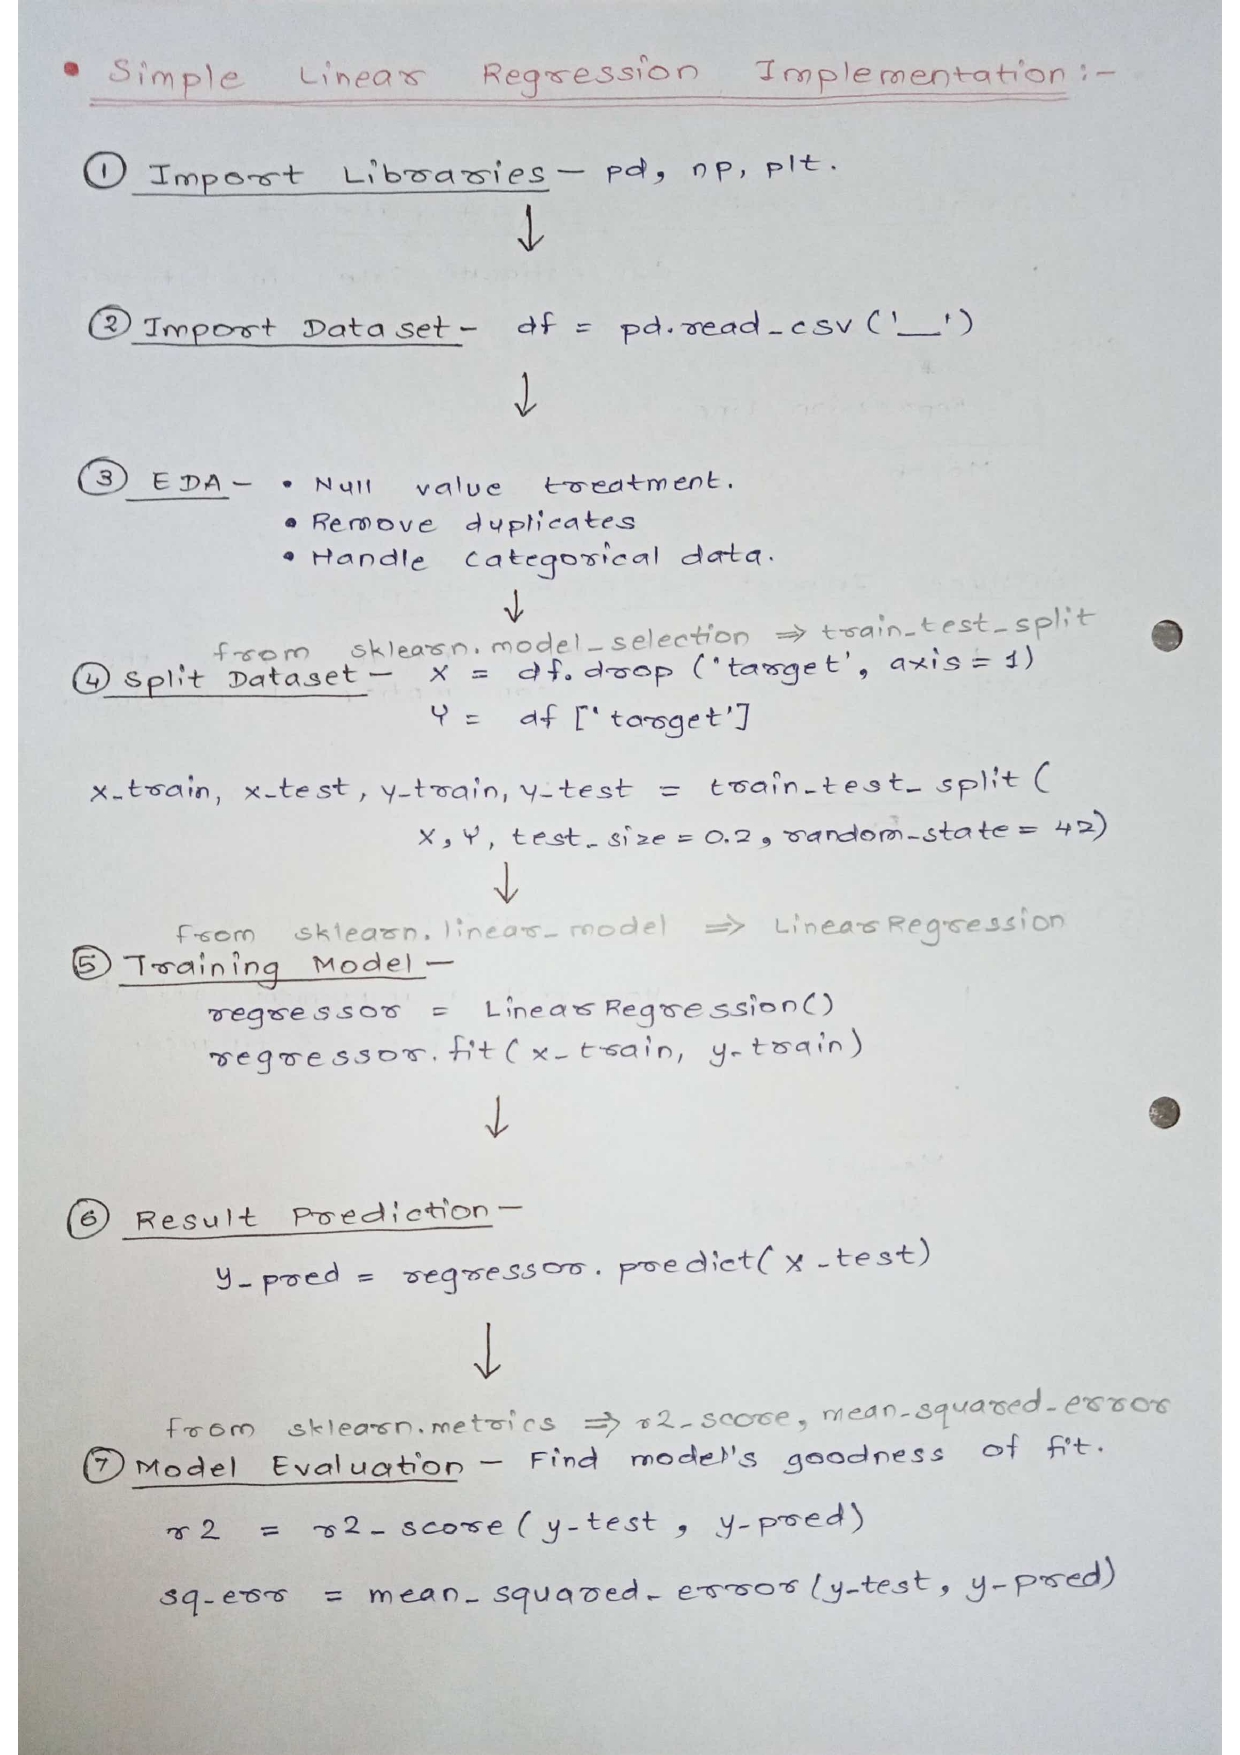 • Simple Linear Regression Implementation :-
① Import Libraries - pd, np, plt.
↓
② Import Dataset - df = pd.read_csv('__')
↓
③ EDA - • Null value treatment.
• Remove duplicates
• Handle categorical data.
↓
from sklearn.model_selection ⇒ train_test_split
④ Split Dataset - X = df.drop('target', axis = 1)
Y = df['target']
x_train, x_test, y_train, y_test = train_test_split(
X, Y, test_size = 0.2, random_state = 42)
↓
from sklearn.linear_model ⇒ LinearRegression
⑤ Training Model -
regressor = LinearRegression()
regressor.fit(x_train, y_train)
↓
⑥ Result Prediction -
y_pred = regressor.predict(x_test)
↓
from sklearn.metrics ⇒ r2_score, mean_squared_error
⑦ Model Evaluation - Find model's goodness of fit.
r2 = r2_score(y_test, y_pred)
sq_err = mean_squared_error(y_test, y_pred)